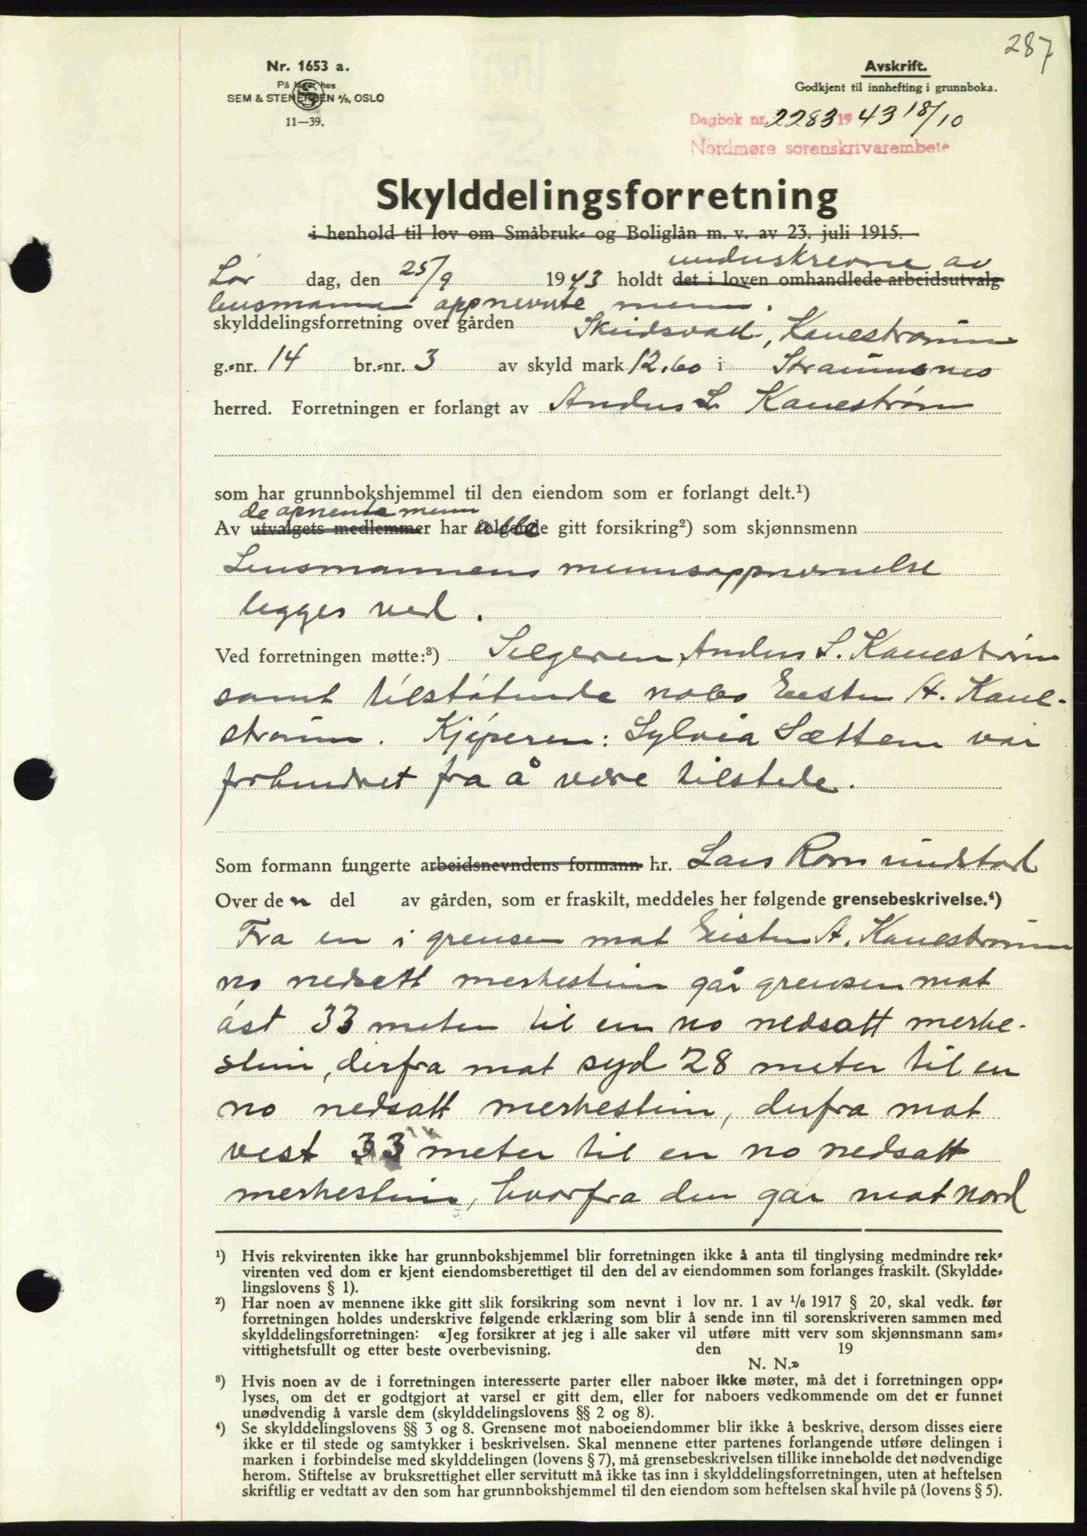 287
Nr. 1653 a.
På lager hos
SEM & STENERSEN A/S, OSLO
11—39.
Avskrift.
Godkjent til innhefting i grunnboka.
Dagbok nr. 2283 1943 18/10
Nordmøre sorenskrivarembete
Skylddelingsforretning
i henhold til lov om Småbruk- og Boliglån m. v. av 23. juli 1915.
underskrevne av
Lør dag, den 25/9 1943 holdt det i loven omhandlede arbeidsutvalg
lensmannen oppnevnte menn.
skylddelingsforretning over gården Skeidsvad, Kanestraumm
g.-nr. 14 br.-nr. 3 av skyld mark 12.60 i Straumsnes
herred. Forretningen er forlangt av Anders L. Kanestrøm
som har grunnbokshjemmel til den eiendom som er forlangt delt.¹)
de opnevnte menn
Av utvalgets medlemmer har alle gitt forsikring²) som skjønnsmenn
Lensmannens mennsoppnevnelse
legges ved.
Ved forretningen møtte:³) Selgeren, Anders L. Kanestrøm
samt tilstøtende nabo Eisten A. Kane-
straum. Kjøperen: Sylvia Sættem var
forhindret fra å være tilstede.
Som formann fungerte arbeidsnevndens formann hr. Lars Romundstad
Over den del av gården, som er fraskilt, meddeles her følgende grensebeskrivelse.⁴)
Fra en i grensen mot Eisten A. Kanestraumm
no nedsett merkestein går grensen mot
åst 33 meter til en no nedsatt merke-
stein, derfra mot syd 28 meter til en
no nedsatt merkestein, derfra mot
vest 33 meter til en no nedsatt
merkestein, hvorfra den går mot nord
¹) Hvis rekvirenten ikke har grunnbokshjemmel blir forretningen ikke å anta til tinglysing medmindre rek-
virenten ved dom er kjent eiendomsberettiget til den del av eiendommen som forlanges fraskilt. (Skyldde-
lingslovens § 1).
²) Har noen av mennene ikke gitt slik forsikring som nevnt i lov nr. 1 av 1/6 1917 § 20, skal vedk. før
forretningen holdes underskrive følgende erklæring som blir å sende inn til sorenskriveren sammen med
skylddelingsforretningen: «Jeg forsikrer at jeg i alle saker vil utføre mitt verv som skjønnsmann sam-
vittighetsfullt og etter beste overbevisning. den 19
N. N.»
³) Hvis noen av de i forretningen interesserte parter eller naboer ikke møter, må det i forretningen opp-
lyses, om det er godtgjort at varsel er gitt dem, eller for naboers vedkommende om det er funnet
unødvendig å varsle dem (skylddelingslovens §§ 2 og 8).
⁴) Se skylddelingslovens §§ 3 og 8. Grensene mot naboeiendommer blir ikke å beskrive, dersom disses eiere
ikke er til stede og samtykker i beskrivelsen. Skal mennene etter partenes forlangende utføre delingen i
marken i forbindelse med skylddelingen (lovens § 7), må grensebeskrivelsen tillike inneholde det nødvendige
herom. Stiftelse av bruksrettighet eller servitutt må ikke tas inn i skylddelingsforretningen, uten at heftelsen
skriftlig er vedtatt av den som har grunnbokshjemmel til den eiendom som heftelsen skal hvile på (lovens § 5).